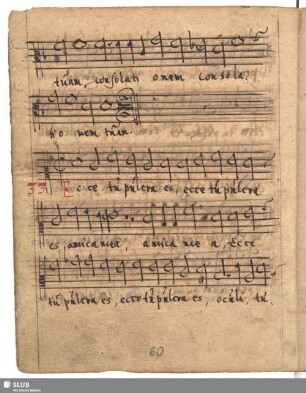 tuam, consolati onem consola
ti o nem tuam.
33. Ecce tu pulcra es, ecce tu pulcra
es, amica mea, amica me a, Ecce
tu pulcra es, ecce tu pulcra es, oculi tu
60
SLUB